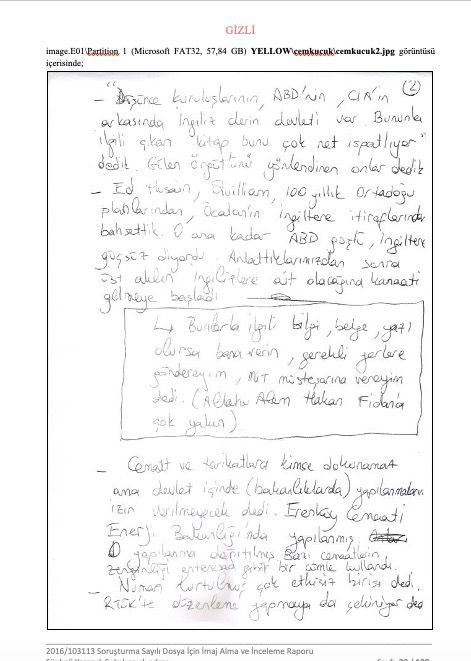 GİZLİ
image.E01\Partition 1 (Microsoft FAT32, 57,84 GB) YELLOW\cemkucuk\cemkucuk2.jpg görüntüsü
içerisinde;
(2)
"
- Düşünce kuruluşlarının, ABD'nin, CIA'in
arkasında İngiliz derin devleti var. Bununla
ilgili çıkan kitap bunu çok net ispatlıyor"
dedik. Gülen örgütünü yönlendiren onlar dedik
- Ed Husain, Quilliam, 100 yıllık Ortadoğu
planlarından, Öcalan'ın İngiltere itiraflarından
bahsettik. O ana kadar ABD güçlü, İngiltere
güçsüz diyordu. Anlattıklarımızdan sonra
üst aklın İngilizlere ait olacağına kanaati
gelmeye başladı
↳ Bunlarla ilgili bilgi, belge, yazı
olursa bana verin, gerekli yerlere
göndereyim, MİT müsteşarına vereyim
dedi. (Allahu Alem Hakan Fidan'a
çok yakın).
- Cemaat ve tarikatlara kimse dokunamaz
ama devlet içinde (bakanlıklarda) yapılanmaları
izin verilmeyecek dedi. Erenköy Cemaati
Enerji Bakanlığı'nda yapılanmış.
O yapılanma dağıtılmış. Bazı cemaatlerin
zenginliği enteresan gibi bir cümle kullandı.
- Numan Kurtulmuş çok etkisiz birisi dedi.
RTÜK'te düzenleme yapmaya da çekiniyor dedi
2016/103113 Soruşturma Sayılı Dosya İçin İmaj Alma ve İnceleme Raporu